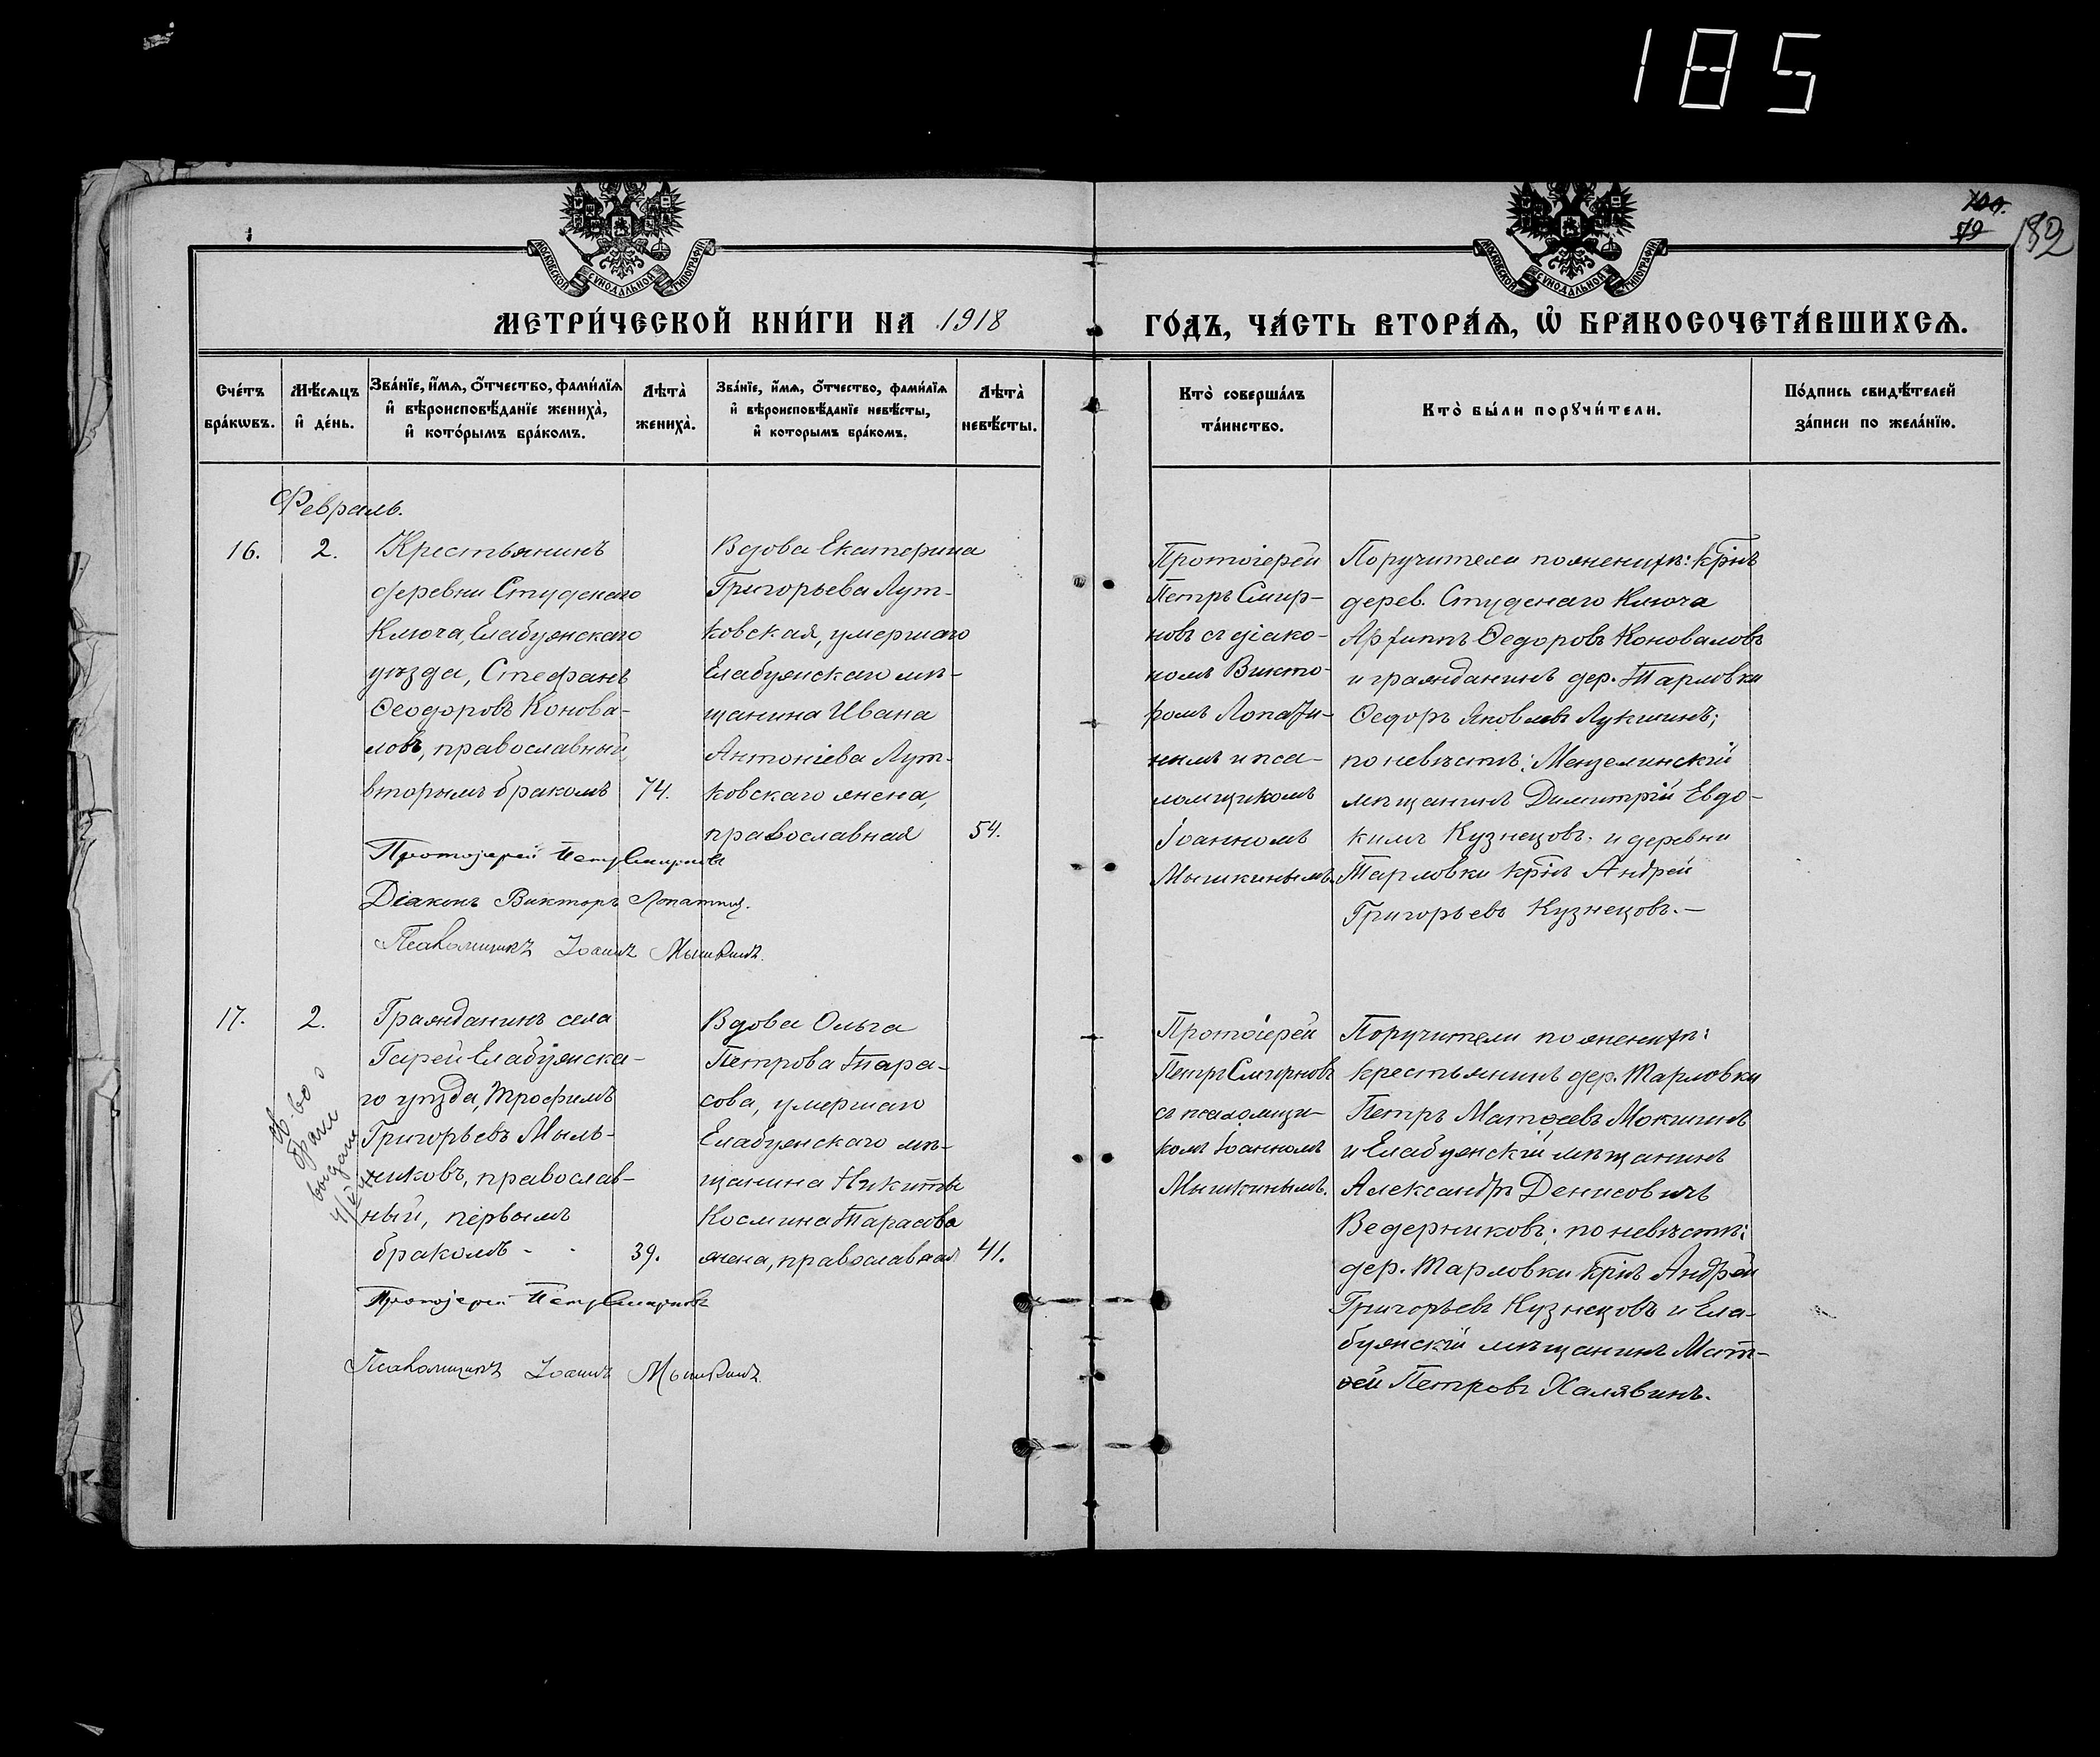 185
182
МОСКОВСКОЙ СѴНОДАЛЬНОЙ ТИПОГРАФІИ
МОСКОВСКОЙ СѴНОДАЛЬНОЙ ТИПОГРАФІИ
МЕТРИ́ЧЕСКОЙ КНИ́ГИ НА 1918 ГО́ДЪ, ЧА́СТЬ ВТОРА́Ѧ, Ѽ БРАКОСОЧЕТА́ВШИХСѦ.
Сче́тъ бра́кѡвъ.
Мѣ́сѧцъ и҆ де́нь.
Зва́нїе, и҆́мѧ, ѻ҆́тчество, фами́лїѧ
и҆ вѣроисповѣ́данїе жениха̀,
и҆ кото́рымъ бра́комъ.
Лѣта̀ жениха̀.
Зва́нїе, и҆́мѧ, ѻ҆́тчество, фами́лїѧ
и҆ вѣроисповѣ́данїе невѣ́сты,
и҆ которымъ бра́комъ.
Лѣта̀ невѣ́сты.
Кто̀ соверша́лъ
та́инство.
Кто̀ бы́ли порꙋчи́тели.
По́дпись свидѣ́телей
за́писи по жела́нїю.
Февраль.
16.
2.
Крестьянинъ
деревни Студенаго
Ключа, Елабужскаго
уѣзда, Стефанъ
Ѳеодоровъ Конова-
ловъ, православный,
вторымъ бракомъ
74.
Вдова Екатерина
Григорьева Лут-
ковская, умершаго
Елабужскаго мѣ-
щанина Ивана
Антоніева Лут-
ковскаго жена,
православная
54.
Протоіерей
Петръ Смир-
новъ съ діако-
номъ Викто-
ромъ Лопати-
нымъ и пса-
ломщикомъ
Іоанномъ
Мышкинымъ.
Поручители по женихѣ: крнъ
дерев. Студенаго Ключа
Архиппъ Ѳедоровъ Коноваловъ
и гражданинъ дер. Тарловки
Ѳедоръ Яковлевъ Лукишинъ;
по невѣстѣ: Мензелинскій
мѣщанинъ Димитрій Евдо-
кимъ Кузнецовъ и деревни
Тарловки крнъ Андрей
Григорьевъ Кузнецовъ.—
Протоіерей Петръ Смирновъ
Діаконъ Викторъ Лопатинъ.
Псаломщикъ Іоаннъ Мышкинъ.
17.
2.
Гражданинъ села
Гарей Елабужска-
го уѣзда, Трофимъ
Григорьевъ Мыль-
никовъ, православ-
ный, первымъ
бракомъ - -
39.
Вдова Ольга
Петрова Тара-
сова, умершаго
Елабужскаго мѣ-
щанина Никиты
Космина Тарасова
жена, православная
41.
Протоіерей
Петръ Смирновъ
съ псаломщи-
комъ Іоанномъ
Мышкинымъ.
Поручители по женихѣ:
крестьянинъ дер. Тарловки
Петръ Матѳеевъ Мокшинъ
и Елабужскій мѣщанинъ
Александръ Денисовичъ
Ведерниковъ; по невѣстѣ:
дер. Тарловки крнъ Андрей
Григорьевъ Кузнецовъ и Ела-
бужскій мѣщанинъ Мат-
ѳей Петровъ Халявинъ.
во о
бракѣ
выдано
Протоіерей Петръ Смирновъ
Псаломщикъ Іоаннъ Мышкинъ.